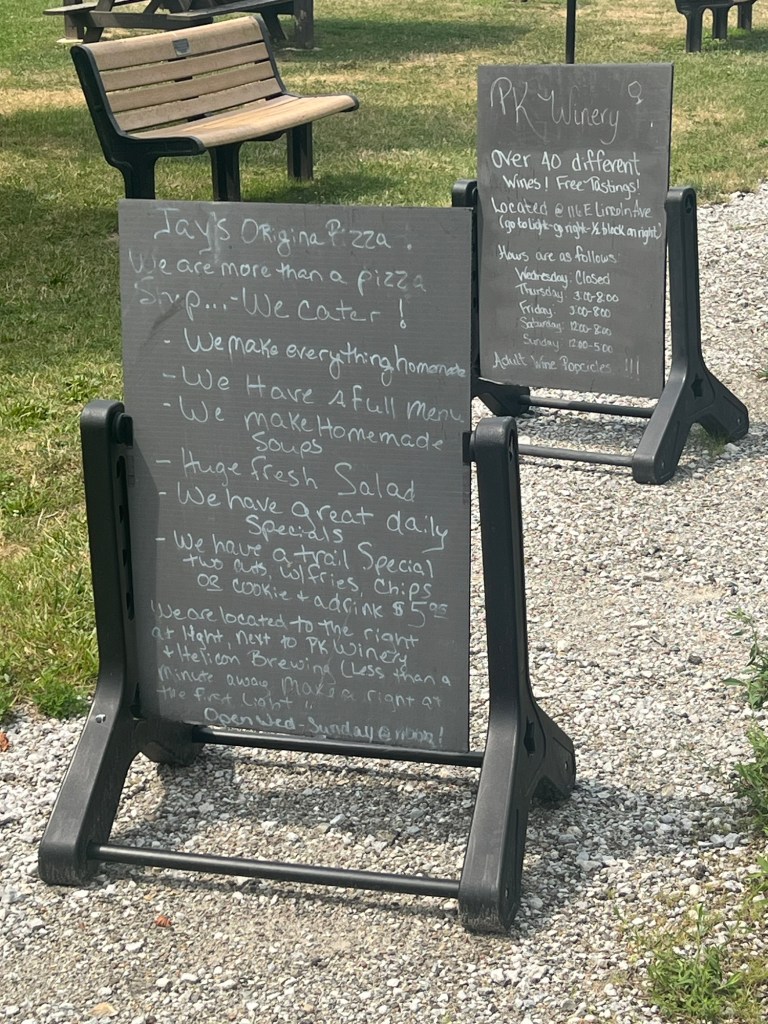 Jay's Origina Pizza !
We are more than a pizza
Shop...- We cater !
- We make everything homemade
- We Have A full menu
- We make Homemade
Soups
- Huge fresh Salad
- We have great daily
Specials
- We have a trail Special
two cuts, w/ fries, chips
or cookie + a drink $5.00
We are located to the right
at light, next to PK Winery
+ Helicon Brewing (Less than a
minute away Make a right at
the first Light !!
Open Wed - Sunday @ noon!
PK Winery
Over 40 different
Wines! Free Tastings!
Located @ 116 E Lincoln Ave
(go to Light-go right-½ block on right)
Hours are as follows:
Wednesday: Closed
Thursday: 3:00-8:00
Friday: 3:00-8:00
Saturday: 12:00-8:00
Sunday 12:00-5:00
Adult Wine Popcicles !!!